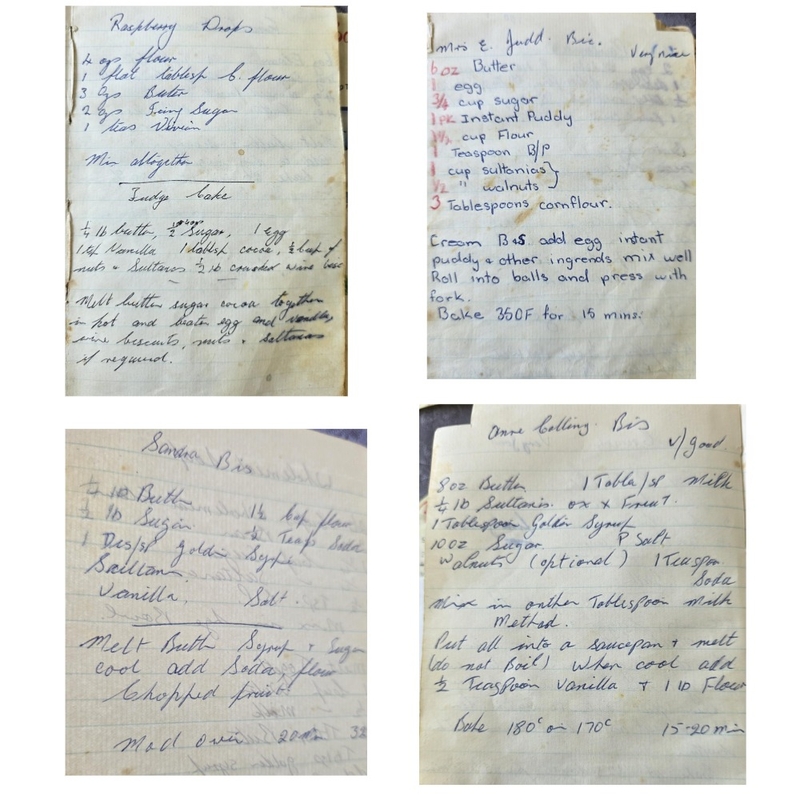 Raspberry Drops
4 ozs flour
1 flat tablesp C. flour
3 Ozs Butter
2 ozs Icing Sugar
1 teas
Mix altogether
Fudge Cake
¼ lb butter, ½ Sugar, 1 egg
1 tsp Vanilla 1 tablsp cocoa, ½ cup of
nuts & Sultanas ½ lb crushed wine bisc
Melt butter sugar cocoa together
in hot and beaten egg and vanilla,
wine biscuits, nuts & Sultanas
if required.
Mrs E. Judd. Bic. Very nice
6 oz Butter
1 egg
3/4 cup sugar
1 PK Instant Puddy
1½ cup Flour
1 Teaspoon B/P
1 cup sultanias}
1/2 " walnuts}
3 Tablespoons cornflour.
Cream B+S. add egg instant
puddy & other ingrends mix well
Roll into balls and press with
fork.
Bake 350F for 15 mins.
Sandra Bis
¼ lb Butter 1½ Cup flour
¼ lb Sugar ½ Teasp Soda
1 Des/sp Goldin
Sultan
Vanilla, Salt.
Melt Butter Syrup + Sugar
cool add Soda, flour
Chopped fruit
Mod Oven 20
Anne Colling. Bis v/good.
8oz Butter 1 Tabla/sp Milk
¼ lb Sultanis. or x Freut.
1 Tablespoon Goldin Syrup
10 oz Sugar P Salt
Walnuts (optional) 1 Teaspon
Soda
Mixe in onther Tablespoon Milk
Method.
Put all into a saucepan + melt
(do not Boil) When cool add
½ Teaspoon Vanilla + 1 lb Flour
Bake 180°c or 170°c 15-20 min